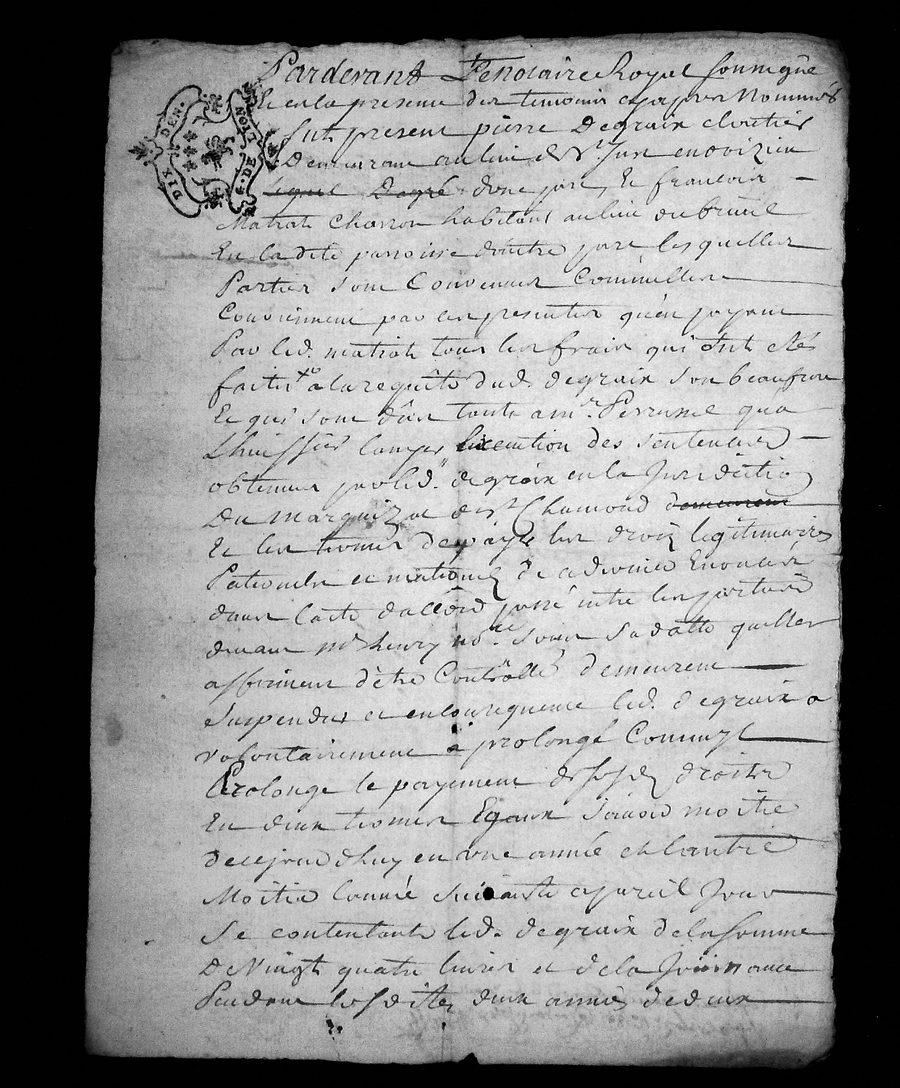 DIX DEN.
G. DE LION
Pardevant Le notaire Royal soussigné
Et en la presence des temoins cy apres Nommés
fut present pierre Degraix
Demeurant au lieu de St. Just en doizieu
lequel Degré donc part, Et francois
Matrat Charron habitant au lieu du breuil
En la dite parroisse d'autre part lesquelles
Parties sont Convenues Comm'elles
Conviennent par ces presentes qu'en payant
Par led. matrat tous les frais qui ont été
faits a la requête dud. degraix son beaufrere
Et qui sont dûs tant a mr. Perrussel qua
L'huissier l'execution des sentences
obtenues par led. degraix en la Jurisdiction
Du marquizat de St Chamond demeurent
Et les termes de payer les droits legitimaires
Paternels et maternels de
dans l'acte d'accord passé entre les parties
devant me henry nore. sous sa datte qu'elles
affirment d'être Controllé demeurent
Suspendus et en consequence led. degraix a
volontairement prolongé Comm'il
Prolonge le payement desdits droits
En deux termes Egaux scavoir moitié
De ce jourdhuy en une année et l'autre
Moitié l'année suivante a pareil Jour
Se contentant led. degraix de la somme
De Vingt quatre livres et de la Jouissance
Pendant lesdites deux années de deux